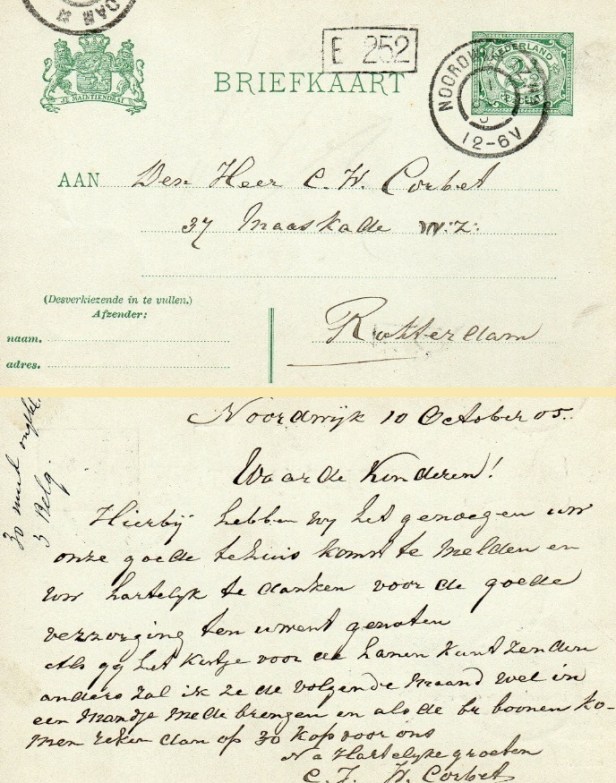 DAM
JE MAINTIENDRAI
E 252
BRIEFKAART
NEDERLAND
NOORDW
12-6V
AAN Den Heer C. W. Corbet
37 Maaskade W:Z:
(Desverkiezende in te vullen.)
Afzender:
naam.
adres.
Rotterdam
Noordwijk 10 October 05.
Waarde Kinderen!
Hierbij hebben wy het genoegen uw
onze goede tehuis komst te melden en
uw hartelyk te danken voor de goede
verzorging ten uwent genoten
Als gy het kistje voor de hanen kunt zenden
anders zal ik ze de volgende maand wel in
een mandje mede brengen en als de br boonen ko-
men reken dan op 30 kop voor ons
Na Hartelyke groeten
C. J. W. Corbet
30
3 Belg.